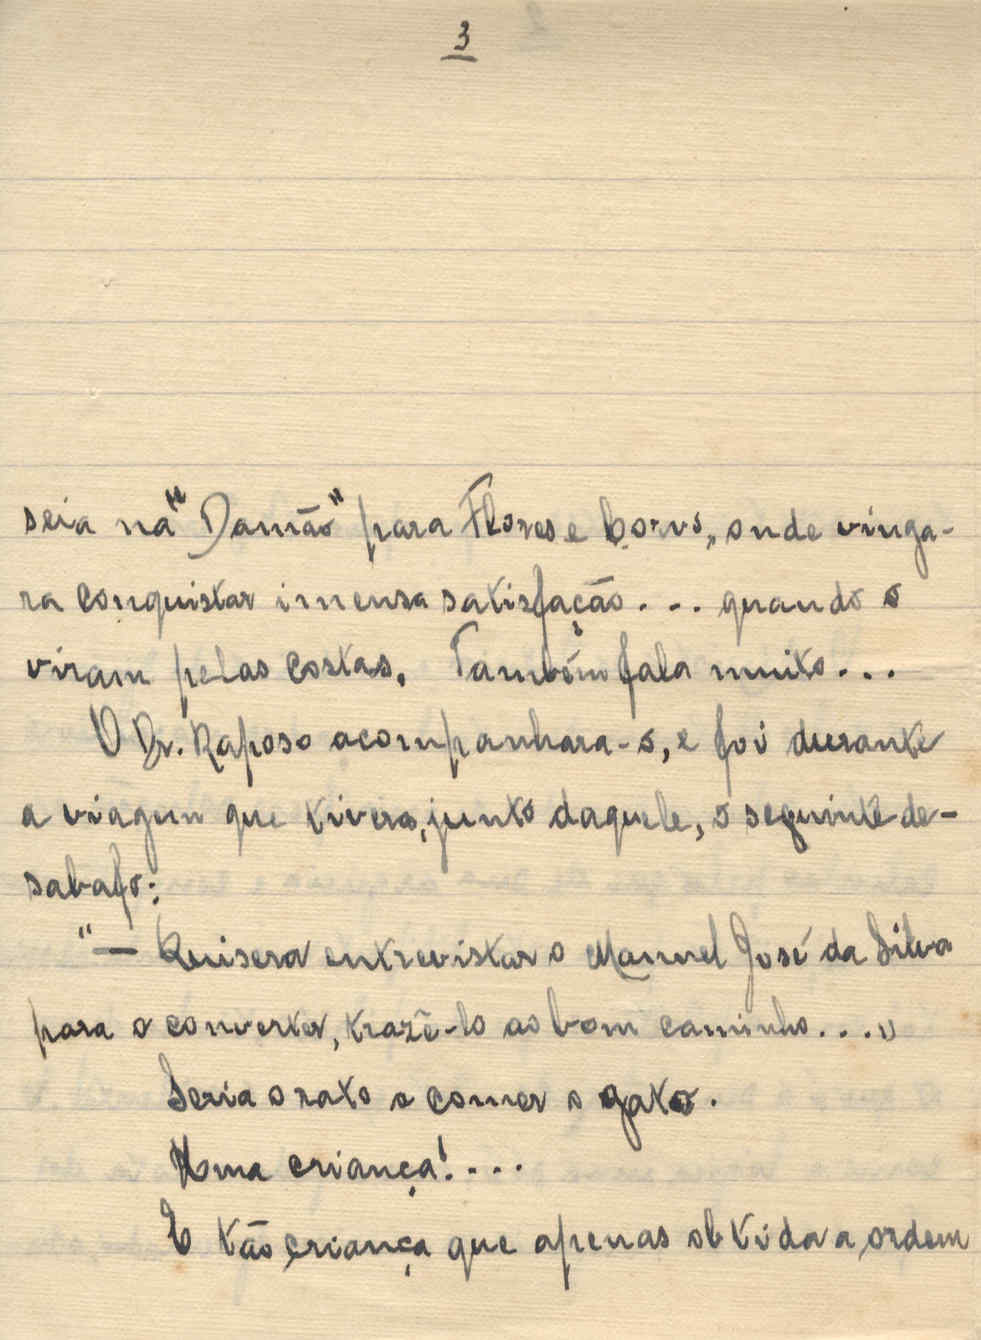 3
seia na "Damão" para Flores e Corvo, onde vinga-
ra conquistar imensa satisfação... quando o
viram pelas costas. Também fala muito...
O Dr. Raposo acompanhara-o, e foi durante
a viagem que tivera, junto daquele, o seguinte de-
sabafo:
"— Quisera entrevistar o Manuel José da Silva
para o converter, trazê-lo ao bom caminho..."
Seria o rato a comer o gato.
Uma criança!...
E tão criança que apenas obtida a ordem